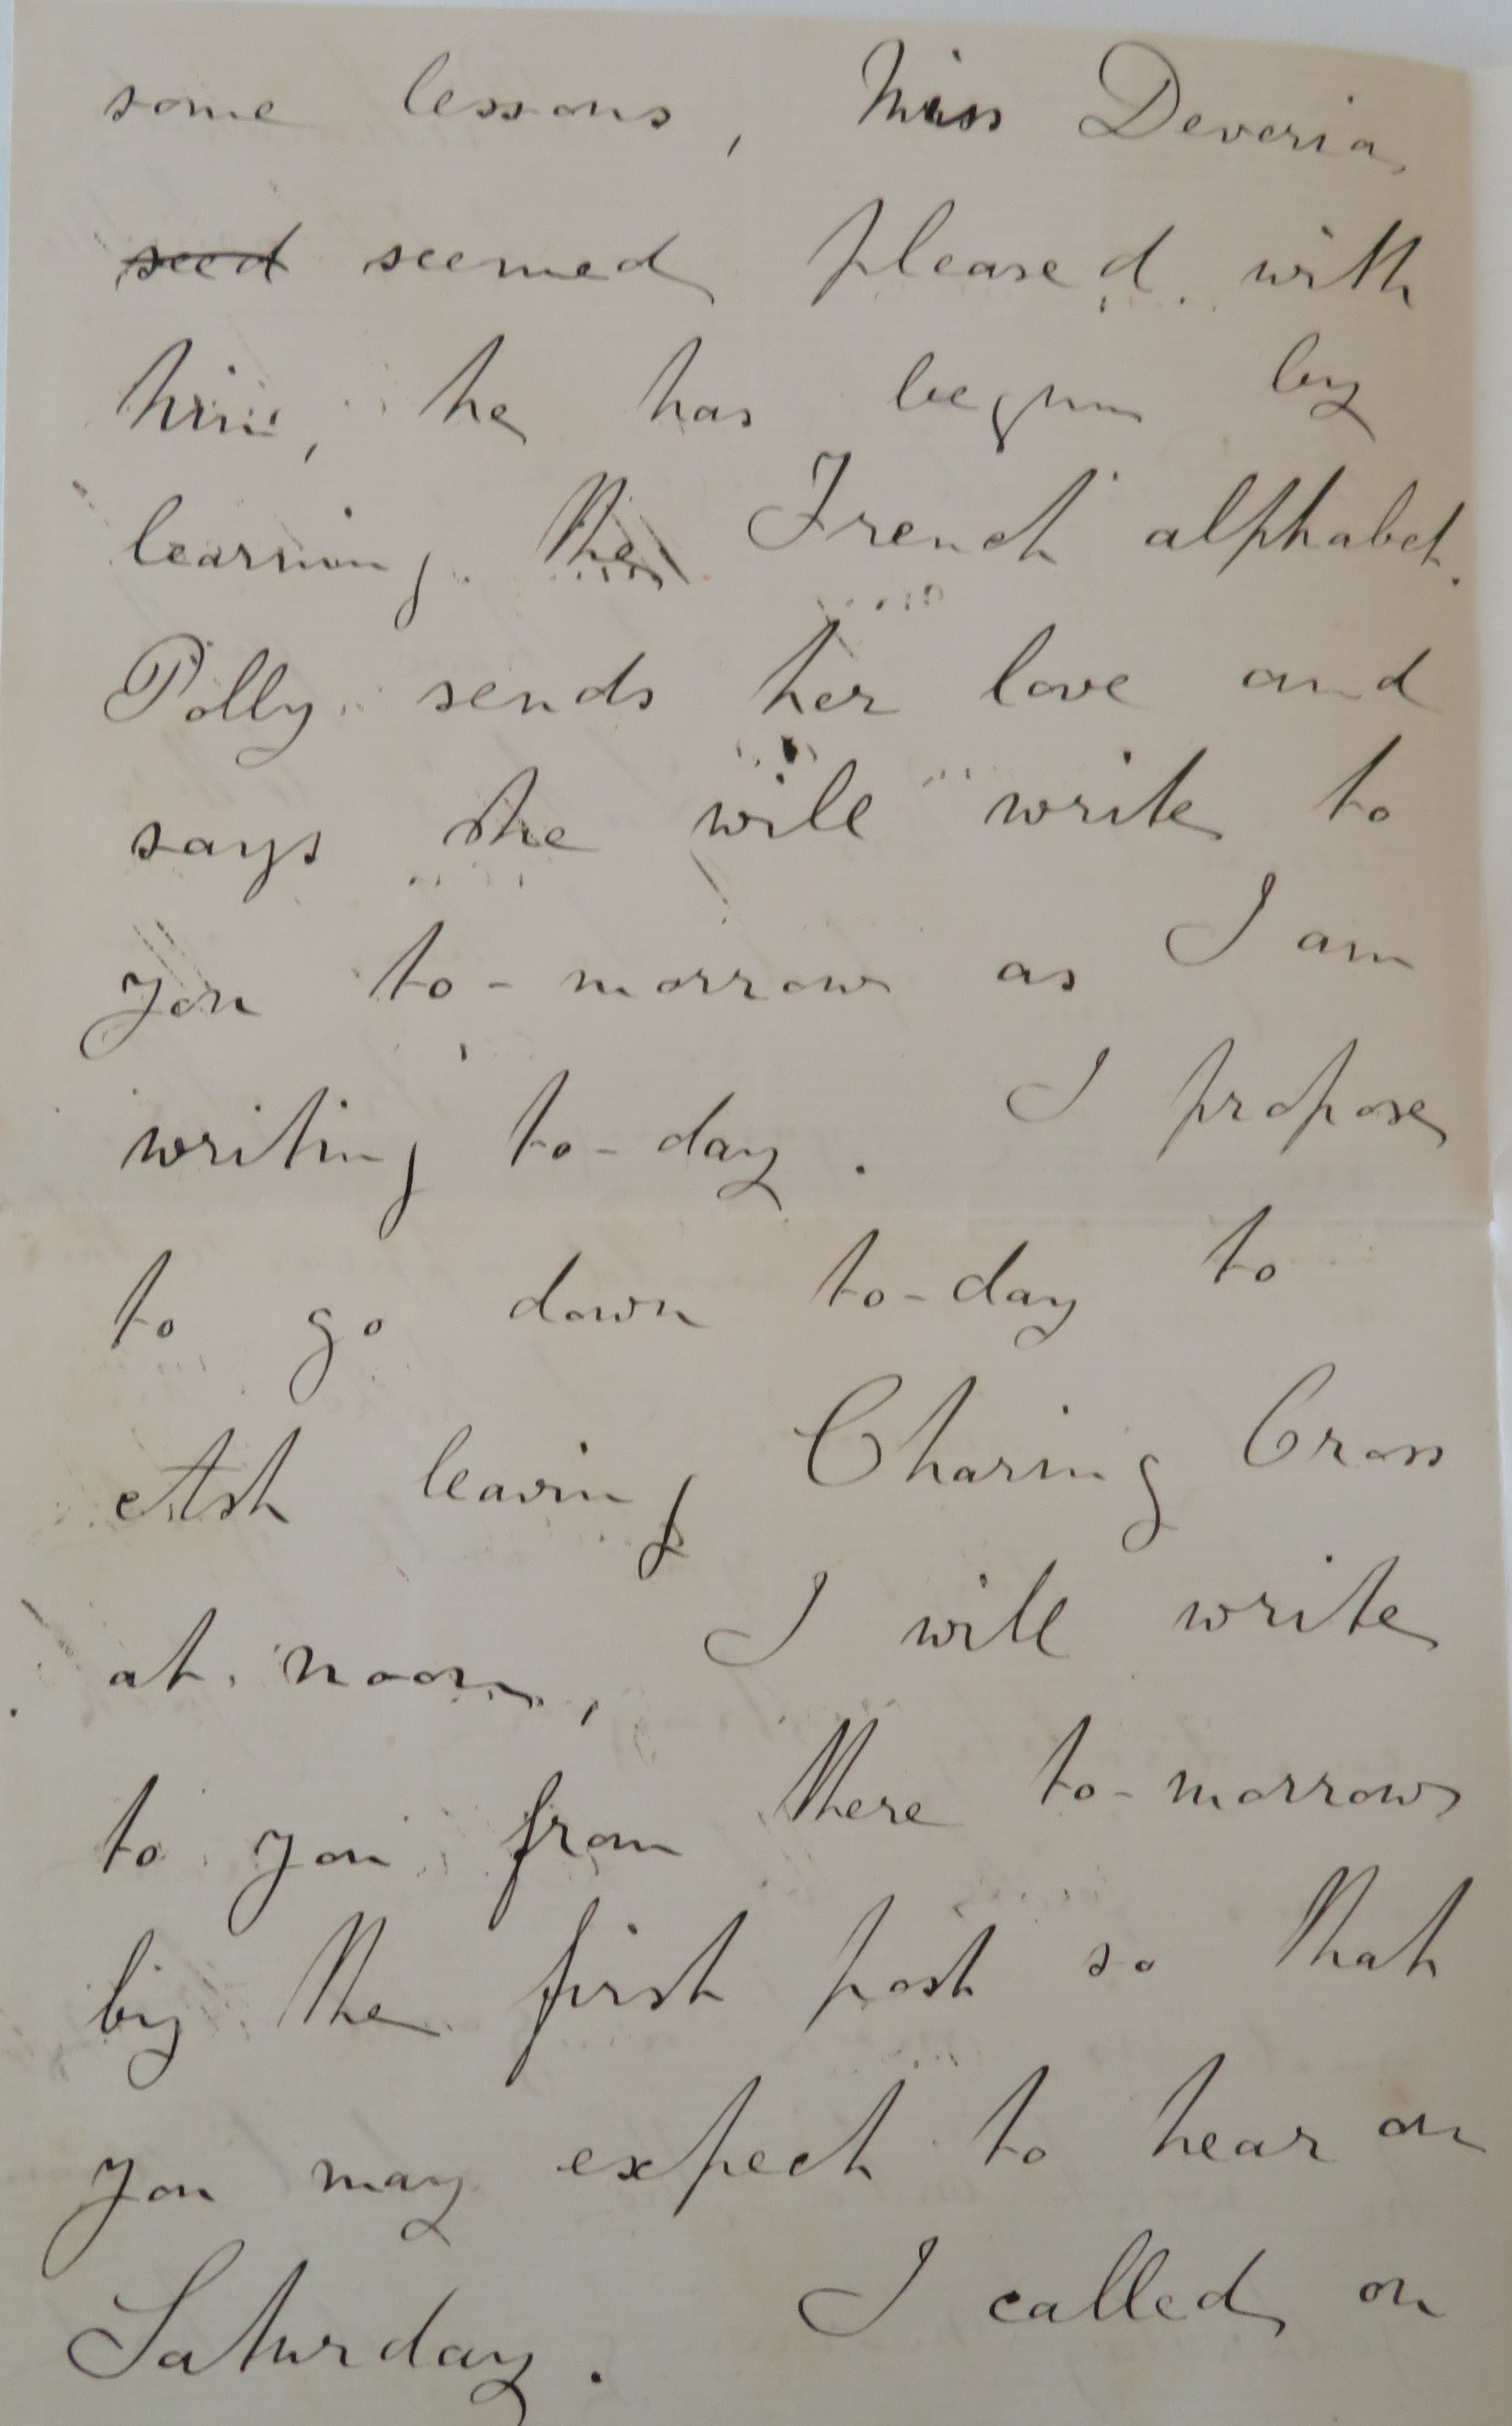 some lessons, Miss Deveria
seed seemed pleased with
him, he has begun by
learning the French alphabet.
Polly sends her love and
says she will write to
you to-morrow as I am
writing to-day. I propose
to go down to-day to
Ash leaving Charing Cross
at noon, I will write
to you from there to-morrow
by the first post so that
you may expect to hear on
Saturday. I called on